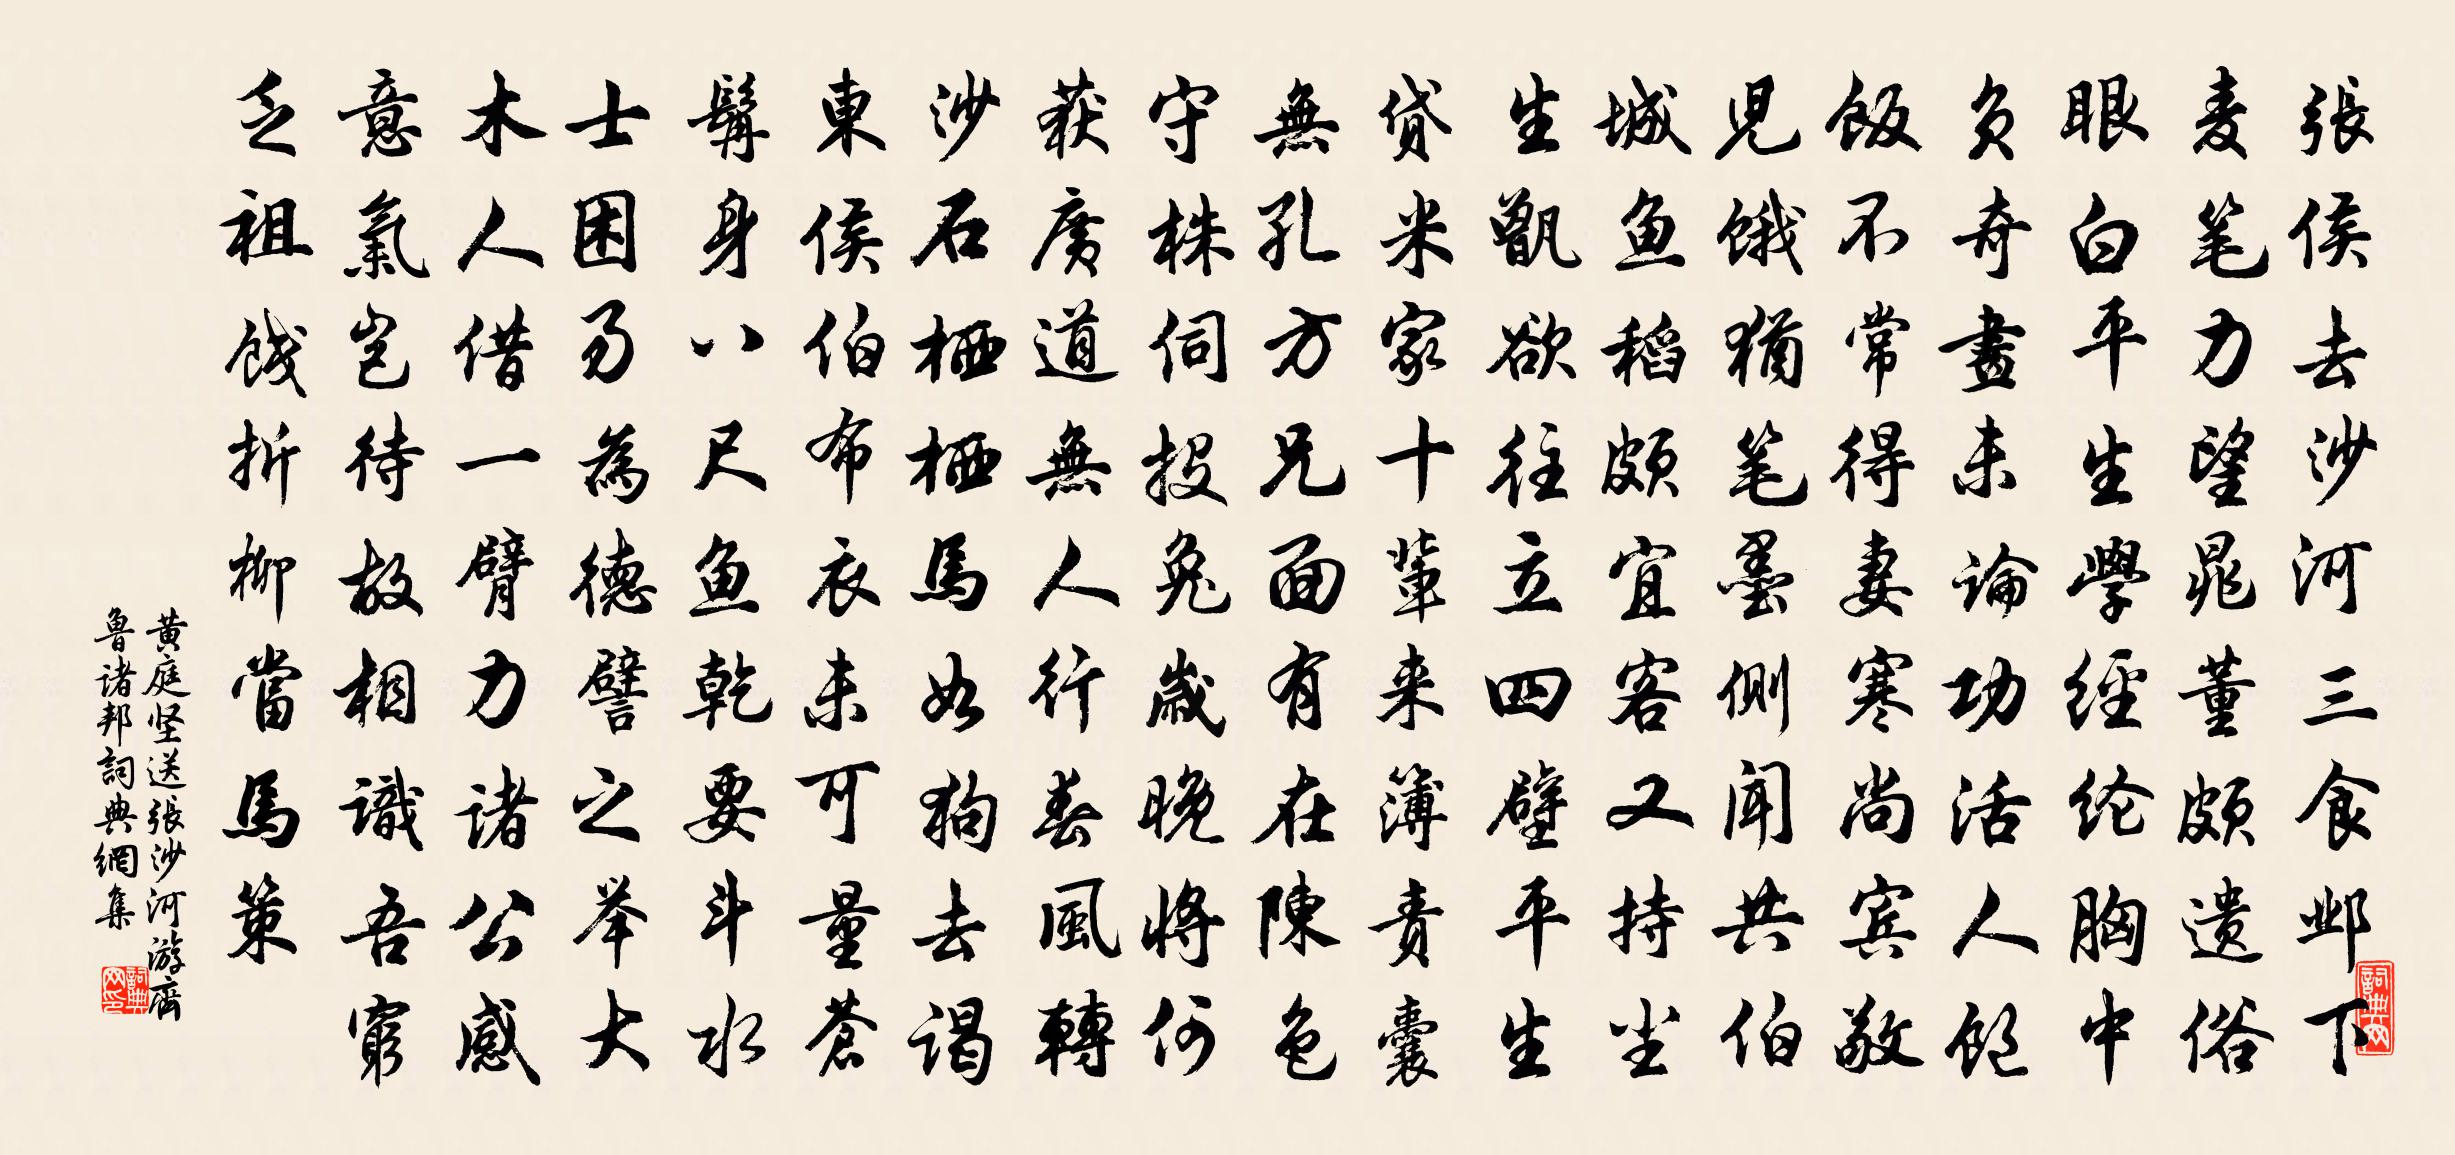 張侯去沙河三食邺下
麦笔力望晁董頗遗俗
眼白平生學經纶胸中
负奇畫未論功活人饱
飯不常得妻寒尚宾敬
児餓猶笔墨側闻共伯
城鱼稻頗宜客又持坐
生甑欲往立四壁平生
貸米家十輩来簿责囊
無孔方兄面有在陳色
守株伺投兔嵗晚將何
获廣道無人行春風轉
沙石栖栖馬如狗去谒
東侯伯布衣未可量蒼
髯身八尺鱼乾要斗水
士困易為德譬之举大
木人借一臂力诸公感
意氣岂待故相識吾窮
乏祖餞折柳當馬策
黄庭坚送張沙河游齊
魯诸邦詞典網集
詞典网
詞典网印